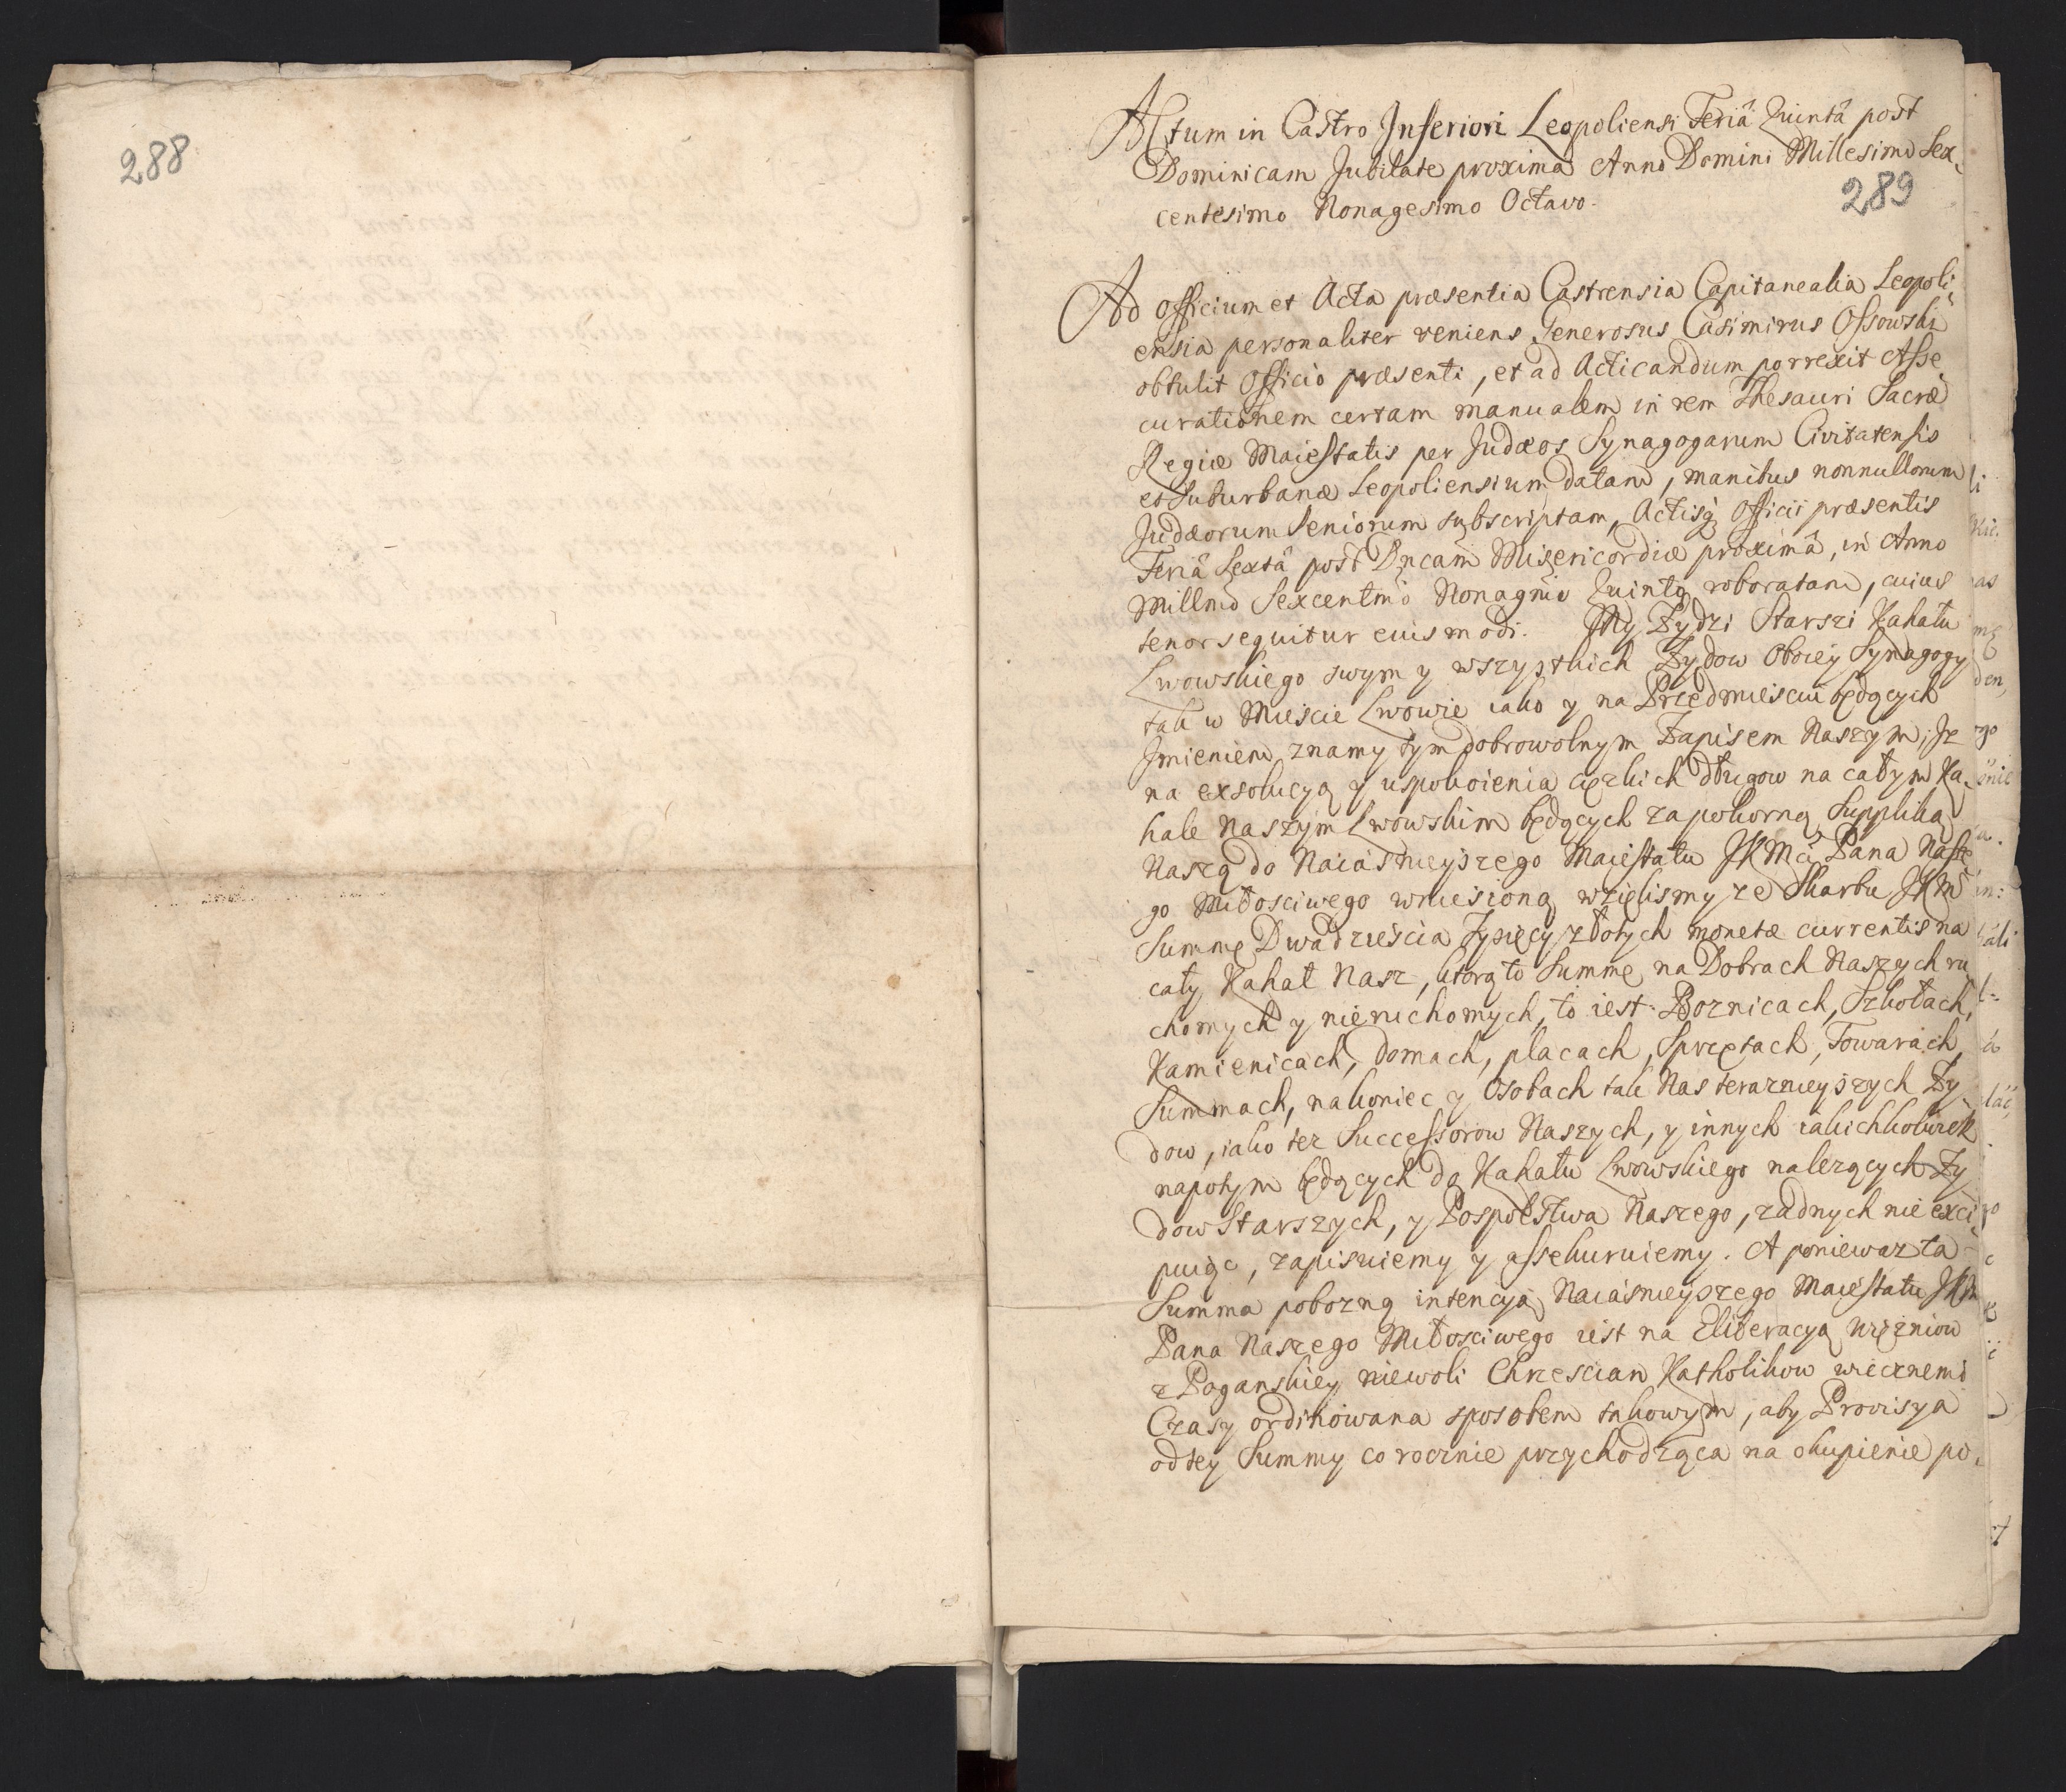 288
Actum in Castro Inferiori Leopoliensi Feriâ Quintâ post
Dominicam Jubilate proxima Anno Domini Millesimo Sex,
289
centesimo Nonagesimo Octavo.
Ad Officium et Acta præsentia Castrensia Capitanealia Leopoli,
ensia personaliter veniens Generosus Casimirus Ossowski
obtulit Officio præsenti, et ad Acticandum porrexit Asse,
curationem certam manualem in rem Thesauri Sacræ
Regiæ Maiestatis per Judæos Synagogarum Civitatensis
et Suburbanæ Leopoliensium datam, manibus nonnullorum
Judæorum Seniorum subscriptam, Actisq Officii præsentis
Feriâ Sextâ post Dncam Misericordiæ proximâ, in Anno
Millmo Sexcentmo Nonagmo Quinto roboratam, cuius
tenor sequitur euismodi. My Zydzi Starszi Kahału
Lwowskiego swym y wszystkich Zydow Oboiey Synagogy
tak w Miescie Lwowie iako y na Przedmiesciu będących
Jmieniem znamy tym dobrowolnym Zapisem Naszym, Jz
na exsolucyą y uspokoienia cięzkich długow na całym Ka,
hale Naszym Lwowskim będących za pokorną Suppliką
Naszą do Naiasnieyszego Maiestatu JKMci Pana Nasze
go Miłosciwego wniesioną wzięlismy ze Skarbu JKM
Summę Dwadziescia Tysięcy złotych monetæ currentis na
cały Kahał Nasz, ktorą to Summę na Dobrach Naszych ru
chomych y nieruchomych, to iest: Boznicach, Szkołach,
Kamienicach, domach, placach, Sprzętach, Towarach,
Summach, nakoniec y Osobach tak Nas teraznieyszych Zy
dow, iako tez Successorow Naszych, y innych iakichkolwiek
napotym będących do Kahału Lwowskiego nalezących Zy
dow Starszych, y Pospolstwa Naszego, zadnych nie exci
puiąc, zapisuiemy y assekuruiemy. A poniewaz ta
Summa pobozną intencyą Naiasnieyszego Maiestatu JKM
Pana Naszego Miłosciwego iest na Eliberacyą więzniow
z Poganskiey niewoli Chrzescian Katholikow wiecznemi
Czasy ordinowana sposobem takowym, aby Provisya
od tey Summy co rocznie przychodząca na okupienie po,